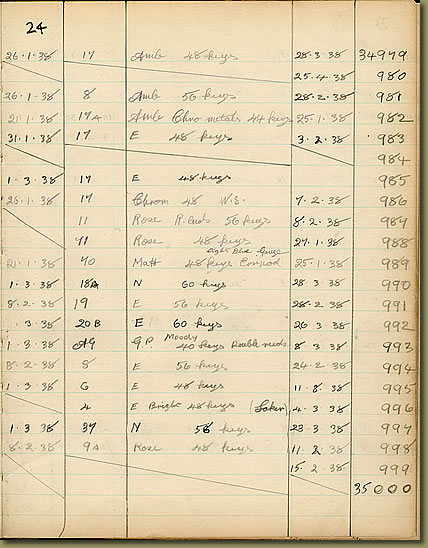 24
26.1.38 17 Amb 48 keys 28.3.38 34979
25.4.38 980
26.1.38 8 Amb 56 keys 28.2.38 981
21.1.38 17A Amb Chro metals 44 keys 25.1.38 982
31.1.38 17 E 48 keys 3.2.38 983
984
1.3.38 17 E 48 keys 985
26.1.38 17 Chrom 48 W.S. 7.2.38 986
11 Rose R. ends 56 keys 8.2.38 987
41 Rose 48 keys 27.1.38 988
21.1.38 40 Matt 48 keys 25.1.38 989
1.3.38 18A N 60 keys 28.3.38 990
8.2.38 19 E 56 keys 28.2.38 991
3.38 20B E 60 keys 26.3.38 992
Moody
1.3.38 A9 G.P. 40 keys Double reeds 8.3.38 993
8.2.38 8 E 56 keys 24.2.38 994
1.3.38 G E 48 keys 11.8.38 995
4 E Bright 48 keys 4.3.38 996
1.3.38 37 N 56 keys 23.3.38 997
8.2.38 9A Rose 48 keys 11.2.38 998
15.2.38 999
35000